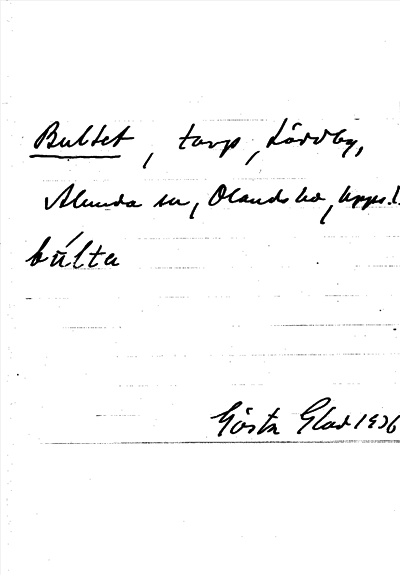 Bultet, torp, Lördby,
Alunda sn, Olands hd, Upps.l.
bu̇́lta
Gösta Glad 1936